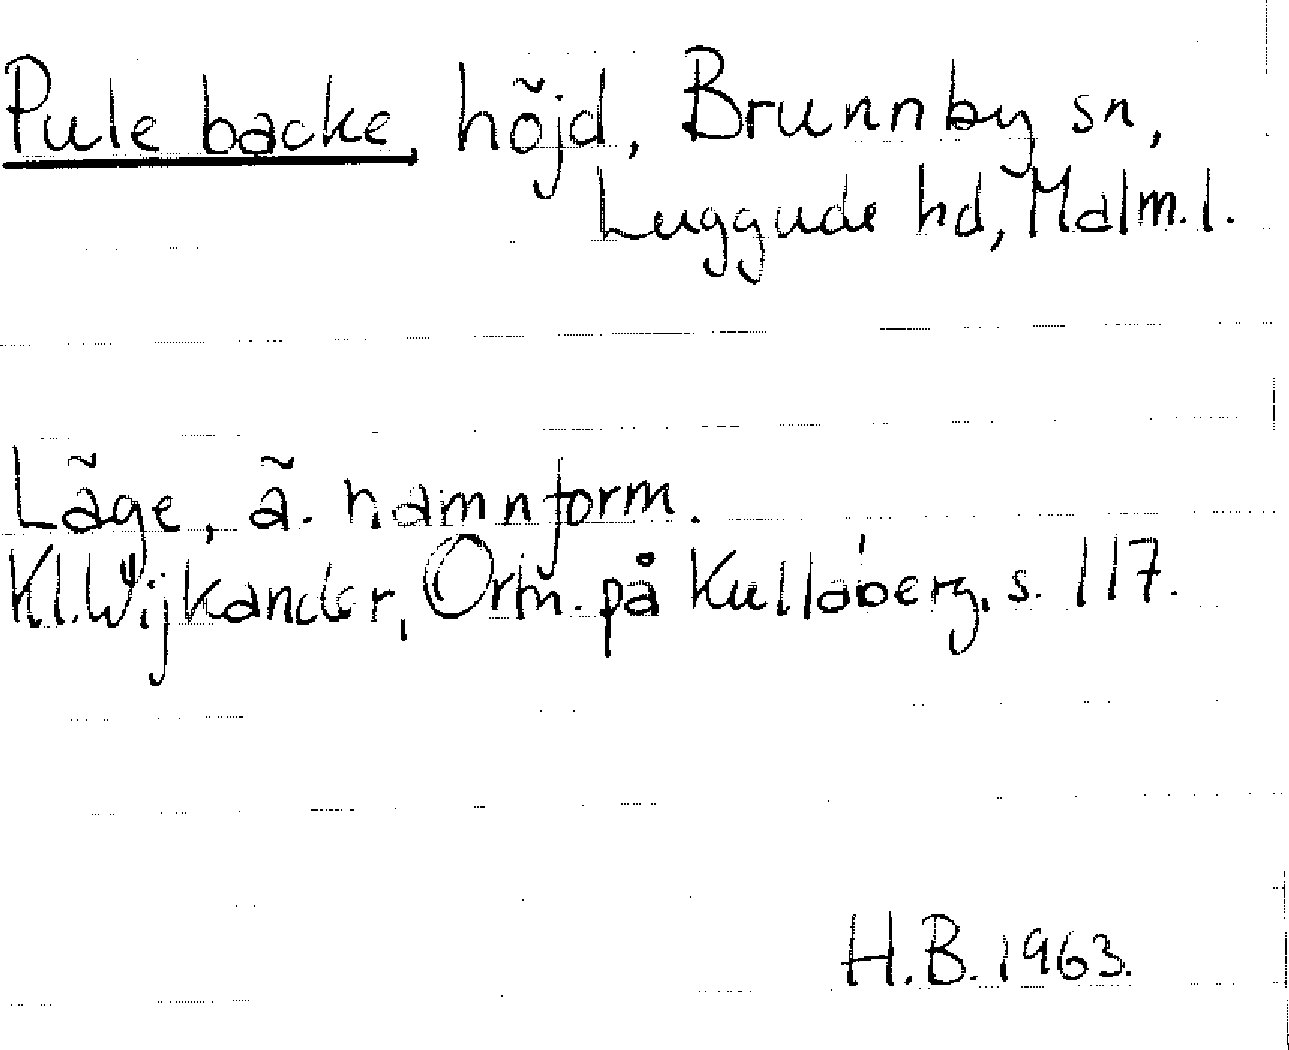 Pule backe, höjd, Brunnby sn,
Luggude hd, Malm.l.
Läge, ä. namnform.
Kl. Wijkander, Ortn. på Kullaberg, s. 117.
H.B. 1963.